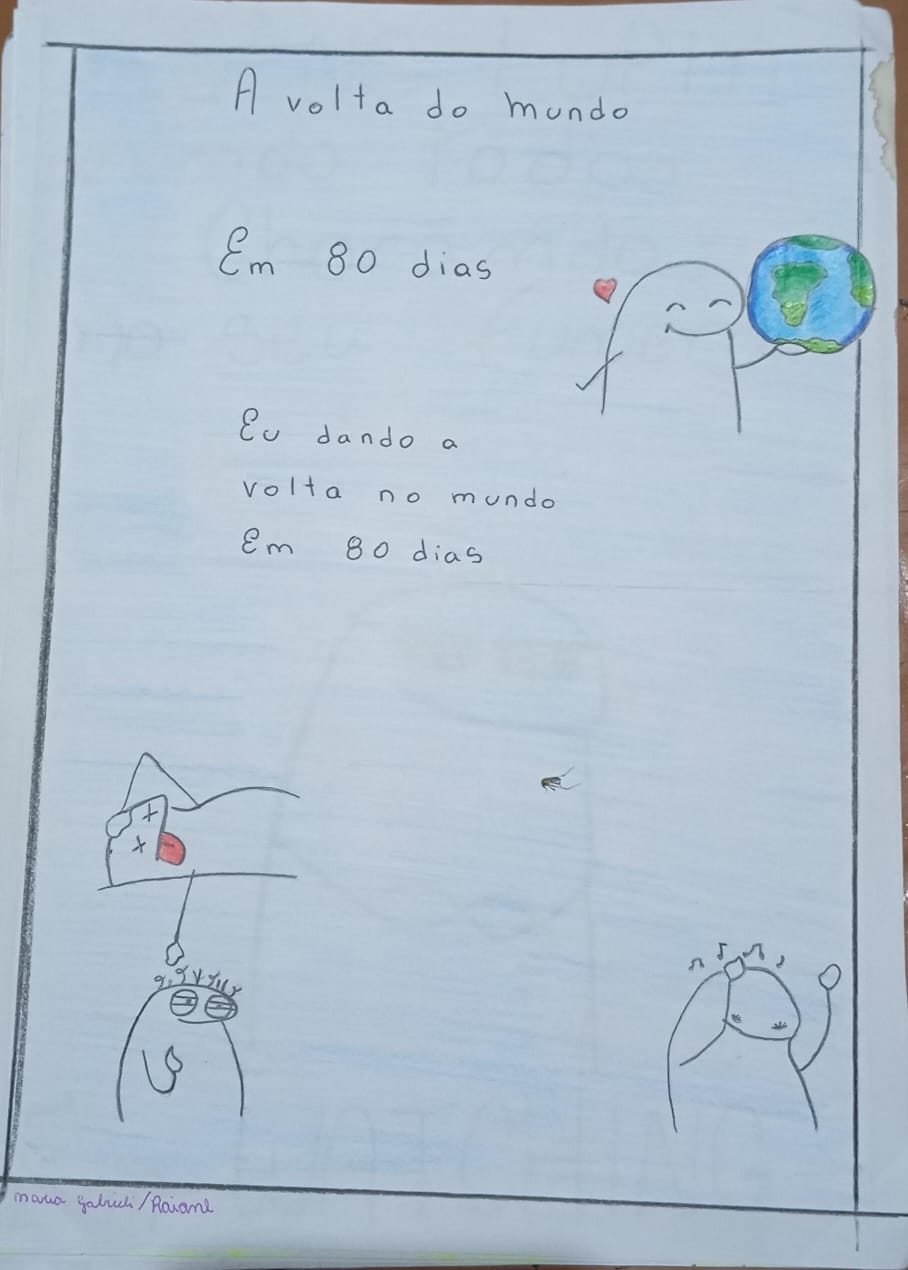 A volta do mundo
Em 80 dias
Eu dando a
volta no mundo
Em 80 dias
maria Gabrieli/Raiane